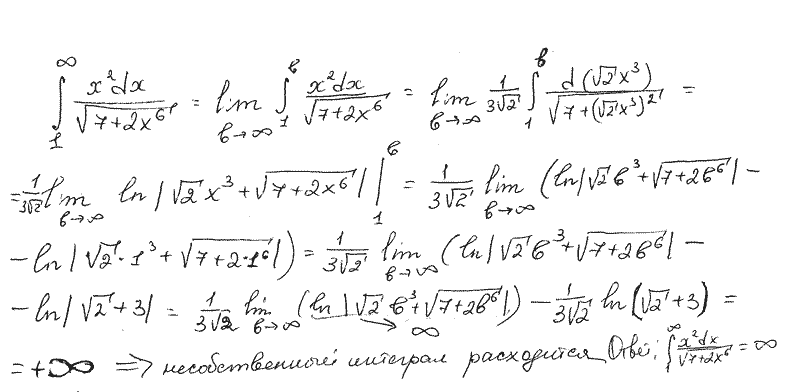 ∫₁^∞ x²dx/√(7+2x⁶) = lim_{b→∞} ∫₁^b x²dx/√(7+2x⁶) = lim_{b→∞} 1/(3√2) ∫₁^b d(√2x³)/√(7+(√2x³)²) =
= 1/(3√2) lim_{b→∞} ln|√2x³+√(7+2x⁶)| |₁^b = 1/(3√2) lim_{b→∞} (ln|√2b³+√(7+2b⁶)| −
− ln|√2·1³+√(7+2·1⁶)|) = 1/(3√2) lim_{b→∞} (ln|√2b³+√(7+2b⁶)| −
− ln|√2+3| = 1/(3√2) lim_{b→∞} (ln|√2b³+√(7+2b⁶)|) → ∞ − 1/(3√2) ln(√2+3) =
= +∞ ⇒ несобственный интеграл расходится Ответ: ∫₁^∞ x²dx/√(7+2x⁶) = ∞